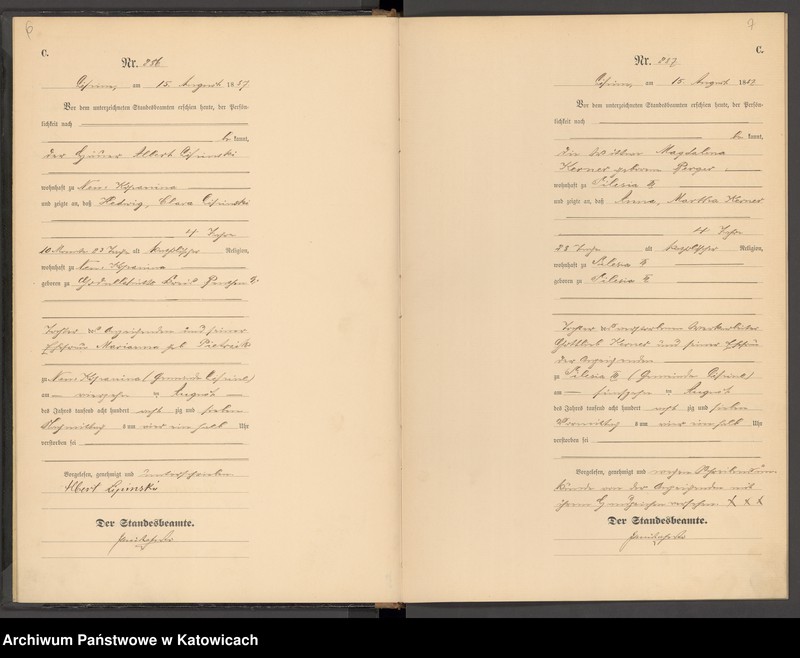 6
C.
Nr. 286
am 15. August 1887
Vor dem unterzeichneten Standesbeamten erschien heute, der Persön-
lichkeit nach
be kannt,
der Häuer Albert
wohnhaft zu Neu-
und zeigte an, daß Hedwig, Clara
4 Jahre
10 Monate 23 Tage alt katholischer Religion,
wohnhaft zu Neu-
geboren zu Kreis Beuthen
Tochter des Anzeigenden und seiner
Ehefrau Marianna geb.
zu Neu (Gemeinde
am vierzehn ten August
des Jahres tausend acht hundert acht zig und sieben
Nachmittags um vier ein halb Uhr
verstorben sei
Vorgelesen, genehmigt und unterschrieben
Der Standesbeamte.
7
C.
Nr. 287
am 15. August 1887
Vor dem unterzeichneten Standesbeamten erschien heute, der Persön-
lichkeit nach
be kannt,
die Wittwe Magdalena
Kerner geborene Berger
wohnhaft zu Silesia
und zeigte an, daß Anna, Martha Kerner
4 Jahre
28 Tage alt katholischer Religion,
wohnhaft zu Silesia
geboren zu Silesia
Tochter des verstorbenen
Gottlieb Kerner und seiner Ehefrau
der Anzeigenden
zu Silesia (Gemeinde
am fünfzehn ten August
des Jahres tausend acht hundert acht zig und sieben
Vormittags um vier ein halb Uhr
verstorben sei
Vorgelesen, genehmigt und wegen Schreibens un
kunde von der Anzeigenden mit
ihrem Handzeichen versehen X X X
Der Standesbeamte.
Archiwum Państwowe w Katowicach